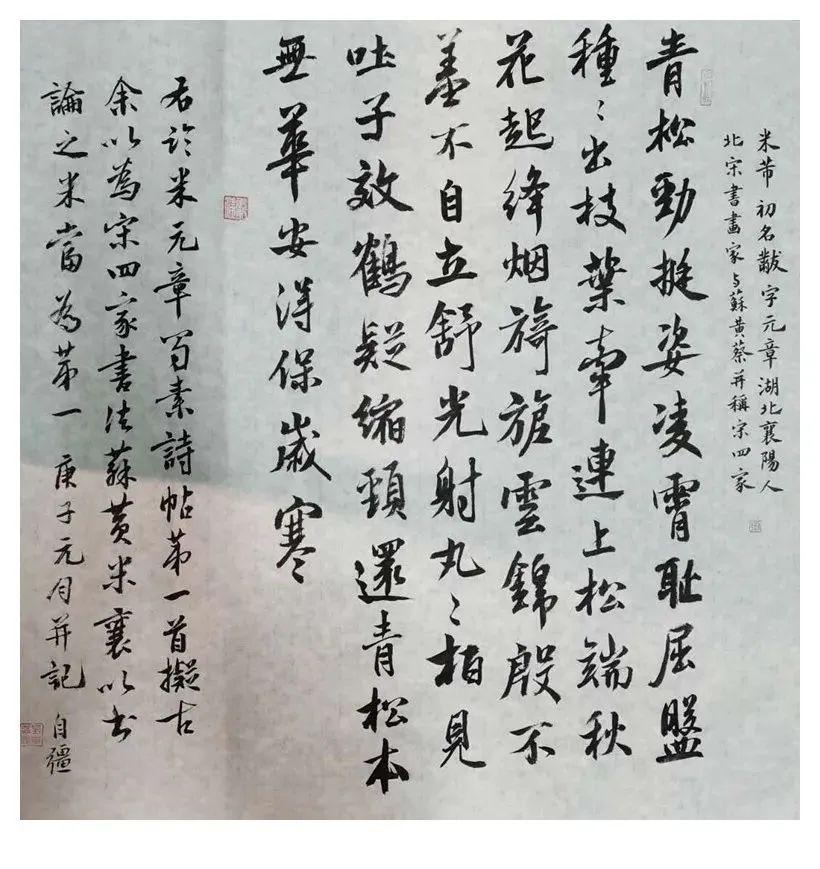 米芾初名黻字元章湖北襄陽人
北宋書畫家与蘇黄蔡并稱宋四家
青松勁挺姿凌霄耻屈盤
種〻出枝葉牽連上松端秋
花起绛烟旖旎雲錦殷不
羞不自立舒光射丸〻柏見
吐子效鶴疑缩頸還青松本
無華安淂保嵗寒
右论米元章蜀素詩帖苐一首擬古
余以為宋四家書法蘇黄米襄以书
論之米當為苐一 庚子元月并記 自彊